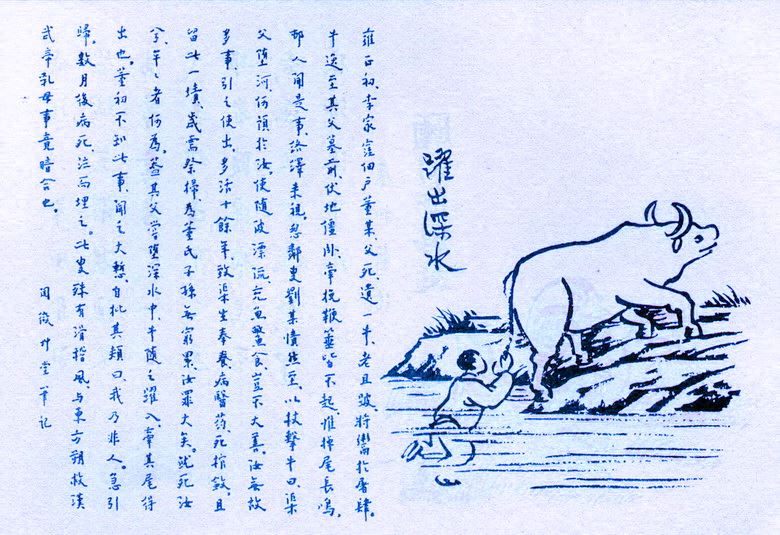 躍出深水
雍正初、李家窪佃戶董某、父死、遺一牛、老且跛、將鬻於屠肆。
牛逸至其父墓前、伏地僵臥、牽挽鞭箠皆不起、惟掉尾長鳴。
邨人聞是事、絡繹來視、忽鄰叟劉某憤然至、以杖擊牛曰、渠
父墮河、何預於汝。使隨波漂沒、充魚鱉食、豈不大善、汝無故
多事、引之使出、多活十餘年、致渠生奉養、病醫藥、死棺斂、且
留此一墳、歲需祭掃、為董氏子孫無窮累、汝罪大矣。就死汝
分、牟々者何為。蓋其父嘗墮深水中、牛隨之躍入、牽其尾得
出也。董初不知此事、聞之大慙、自批其頰曰、我乃非人。急引
歸、數月後病死、泣而埋之。此叟殊有滑稽風、與東方朔救漢
武帝乳母事竟暗合也。 閱微艸堂筆記